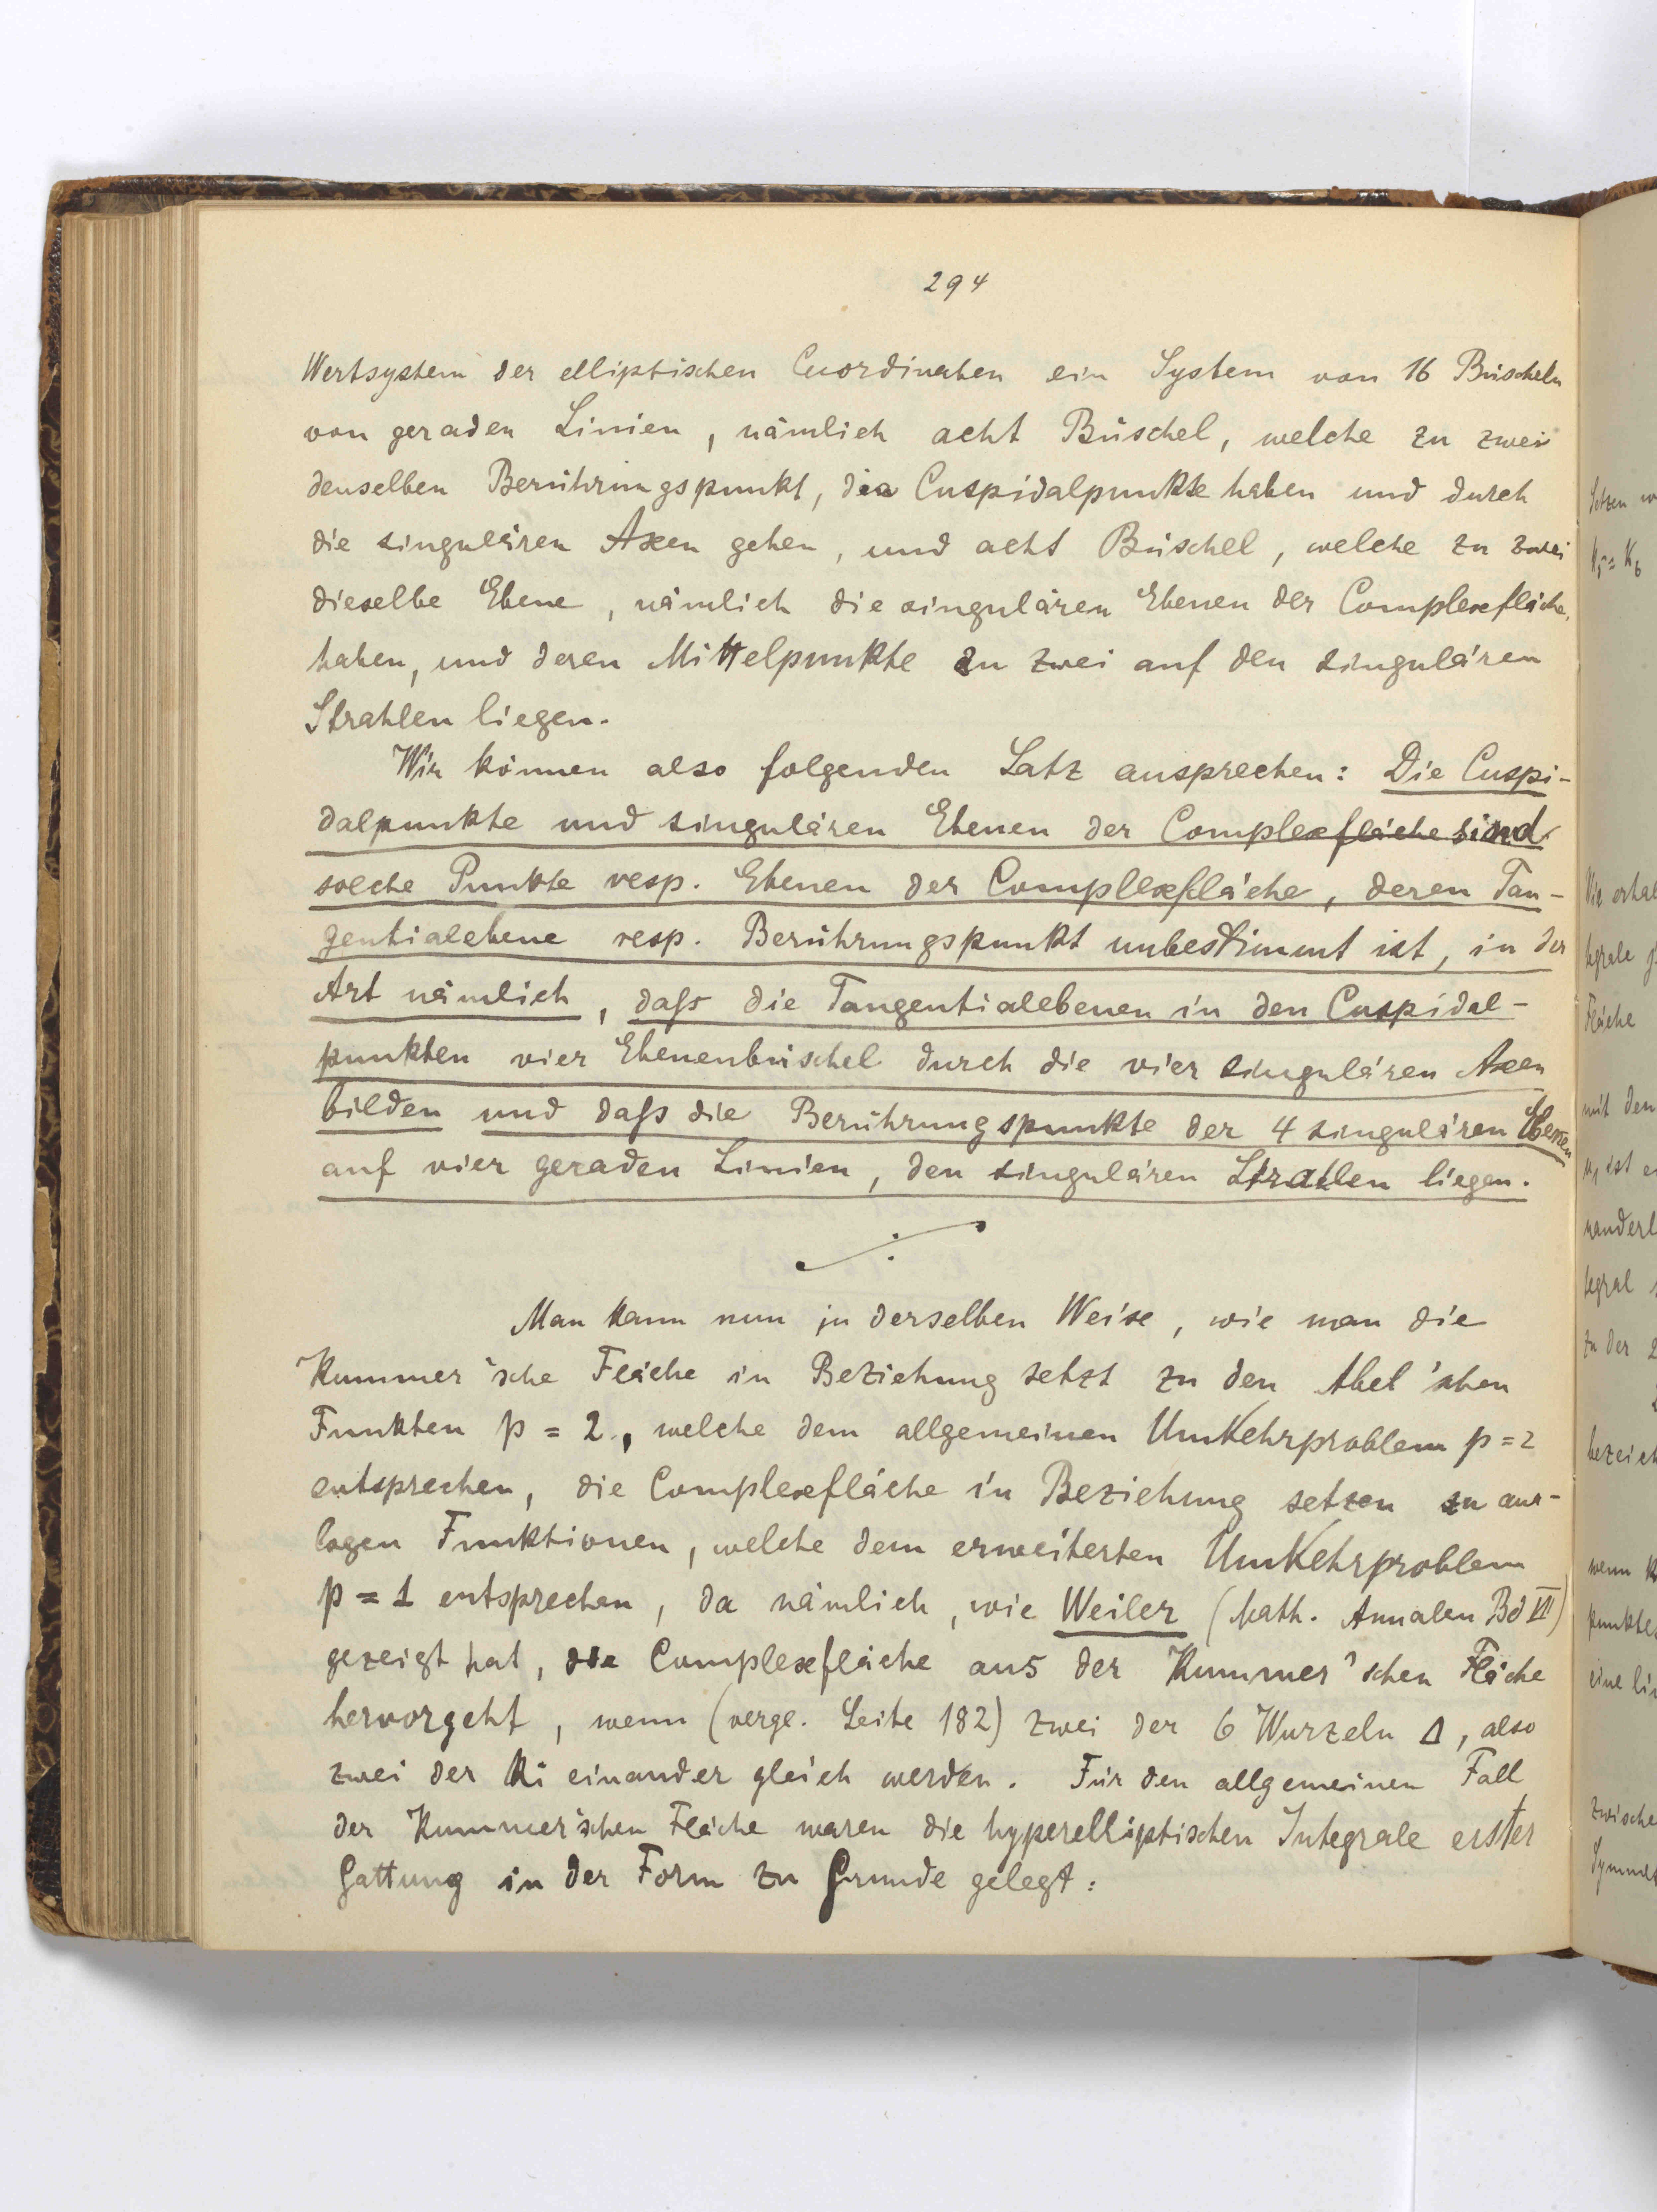 294
Wertsystem der elliptischen Coordinaten ein System von 16 Büscheln
von geraden Linien, nämlich acht Büschel, welche zu zwei
denselben Berührungspunkt, die Cuspidalpunkte haben und durch
die singulären Axen gehen, und acht Büschel, welche zu zwei
dieselbe Ebene, nämlich die singulären Ebenen der Complexfläche,
haben, und deren Mittelpunkte zu zwei auf den singulären
Strahlen liegen.
Wir können also folgenden Satz aussprechen: Die Cuspi-
dalpunkte und singulären Ebenen der Complexfläche sind
solche Punkte resp. Ebenen der Complexfläche, deren Tan-
gentialebene resp. Berührungspunkt unbestimmt ist, in der
Art nämlich, daß die Tangentialebenen in den Cuspidal-
punkten vier Ebenenbüschel durch die vier singulären Axen
bilden und daß die Berührungspunkte der 4 singulären Ebenen
auf vier geraden Linien, den singulären Strahlen liegen.
Man kann nun in derselben Weise, wie man die
Kummer'sche Fläche in Beziehung setzt zu den Abel'schen
Funkten p = 2, welche dem allgemeinen Umkehrproblem p = 2
entsprechen, die Complexfläche in Beziehung setzen zu ana-
logen Funktionen, welche dem erweiterten Umkehrproblem
p = 1 entsprechen, da nämlich, wie Weiler (Math. Annalen Bd VII)
gezeigt hat, die Complexfläche aus der Kummer'schen Fläche
hervorgeht, wenn (vergl. Seite 182) zwei der 6 Wurzeln Δ, also
zwei der ki einander gleich werden. Für den allgemeinen Fall
der Kummer'schen Fläche waren die hyperelliptischen Integrale erster
Gattung in der Form zu Grunde gelegt: